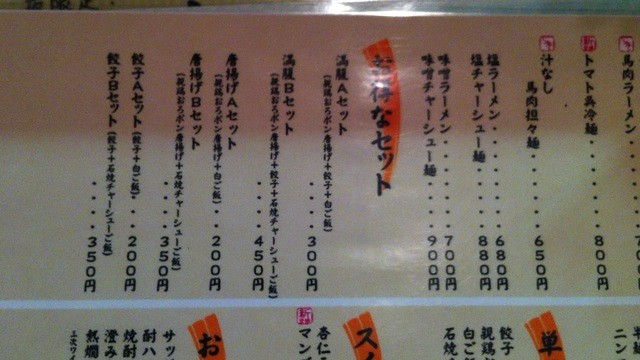 馬肉ラーメン・・・・・7
トマト呉冷麺・・・・・800円
汁なし
馬肉担々麺・・・・・650円
塩ラーメン・・・・・680円
塩チャーシュー麺・・・・880円
味噌ラーメン・・・・・700円
味噌チャーシュー麺・・・・900円
お得なセット
満腹Aセット
(親鶏おろポン唐揚げ+餃子+白ご飯)
・・・・300円
満腹Bセット
(親鶏おろポン唐揚げ+餃子+石焼チャーシューご飯)
・・・・450円
唐揚げAセット
(親鶏おろポン唐揚げ+白ご飯)・・・200円
唐揚げBセット
(親鶏おろポン唐揚げ+石焼チャーシューご飯)
・・・・350円
餃子Aセット(餃子+白ご飯)・・・200円
餃子Bセット(餃子+石焼チャーシューご飯)
・・・・350円
ニン
単
餃子
親鶏
白ご
石焼
ス
杏仁
マン
お
サッ
酎ハ
焼酎
澄み
熱燗